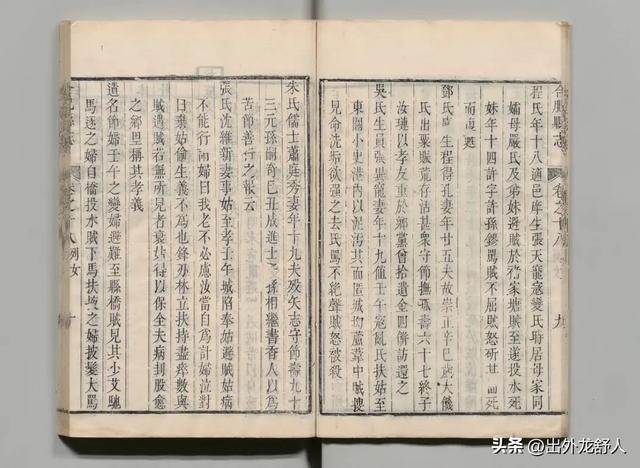 合肥縣志
卷之十八
九
程氏年十八適邑庠生張天寵寇變氏時居母家同
孀母嚴氏及弟妹避賊於家塘賊至遂投水死
妹年十四許字許孫鏐罵賊不屈賊怒斫 而死
而 逝
鄧氏庠生程得孔妻年廿五夫故崇正辛巳歲大饑
氏出粟賑荒存活甚衆守節撫孤壽六十七終子
汝璉以孝友重於鄉黨曾拾遺金四 訪還之
吳氏生員張異寵妻年十九值壬午寇亂氏扶姑至
東關小史港內以泥污其面匿城 蘆葦中賊搜
見命洗垢欲强之去氏罵不絕聲賊怒被殺
朱氏儒士蕭庭秀妻年十九夫歿矢志守節壽九十
三元孫嗣奇己丑成進士三孫相繼書香人以爲
苦節善行之報云
張氏沈維新妻事姑至孝壬午城陷奉姑避賊姑病
不能行謂婦曰我老不必慮汝當自爲計婦泣對
曰棄姑偷生義不爲也鋒刃林立扶持盡瘁數與
賊遇賊若無所見者竟姑得以保全夫病刲股愈
之鄉里稱其孝義
遺名節婦壬午之變婦避難至縣橋賊見其少艾馳
馬逐之婦自橋投水賊下馬扶 之婦披髮大罵
卷之十八 列女
十
头条 @出外龙舒人